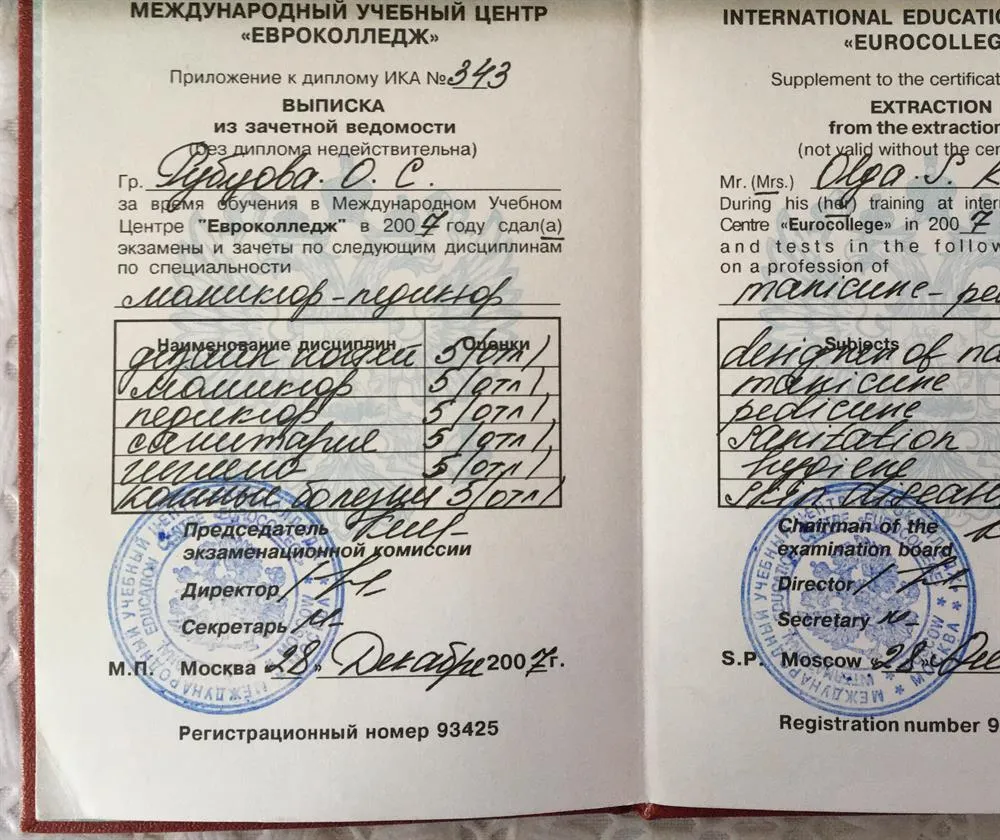 МЕЖДУНАРОДНЫЙ УЧЕБНЫЙ ЦЕНТР
«ЕВРОКОЛЛЕДЖ»
Приложение к диплому ИКА № 343
ВЫПИСКА
из зачетной ведомости
(без диплома недействительна)
Гр. Рубцова О. С.
за время обучения в Международном Учебном
Центре "Евроколледж" в 2007 году сдал(а)
экзамены и зачеты по следующим дисциплинам
по специальности
маникюр-педикюр
Наименование дисциплин Оценки
дизайн ногтей 5/отл/
маникюр 5/отл/
педикюр 5/отл/
санитария 5/отл/
гигиена 5/отл/
кожные болезни 5/отл/
Председатель
экзаменационной комиссии
Директор
Секретарь
М.П. Москва «28» Декабря 2007г.
Регистрационный номер 93425
INTERNATIONAL EDUCATIO
«EUROCOLLEG
Supplement to the certificat
EXTRACTION
from the extraction
(not valid without the cer
Mr. (Mrs.) Olga S.
During his (her) training at inter
Centre «Eurocollege» in 2007
and tests in the follow
on a profession of
manicure- pe
Subjects
designer of na
manicure
pedicure
sanitation
hygiene
skin disea
Chairman of the
examination board
Director
Secretary
S.P. Moscow «28»
Registration number 9